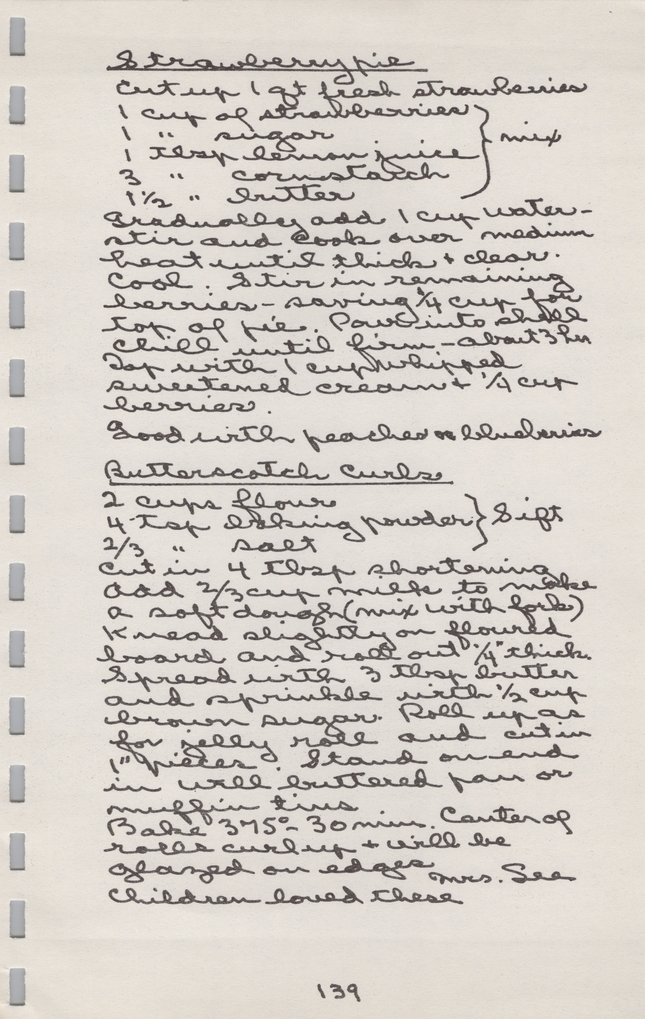 Strawberry pie
Cut up 1 qt fresh strawberries
1 cup of strawberries
1 " sugar
1 tbsp lemon juice } mix
3 " cornstarch
1 1/2 " butter
Gradually add 1 cup water -
stir and cook over medium
heat until thick + clear.
Cool. Stir in remaining
berries - saving 1/4 cup for
top of pie. Pour into shell
Chill until firm - about 3 hrs
Top with 1 cup whipped
sweetened cream + 1/4 cup
berries.
Good with peaches or blueberries
Butterscotch Curls
2 cups flour
4 tsp baking powder } Sift
2/3 " salt
Cut in 4 tbsp shortening
add 2/3 cup milk to make
a soft dough (mix with fork)
Knead slightly on floured
board and roll out 1/4" thick.
Spread with 3 tbsp butter
and sprinkle with 1/2 cup
brown sugar. Roll up as
for jelly roll and cut in
1" pieces. Stand on end
in well buttered pan or
muffin tins
Bake 375° - 30 min. Center of
rolls curl up + will be
glazed on edges
Mrs. See
Children loved these
139